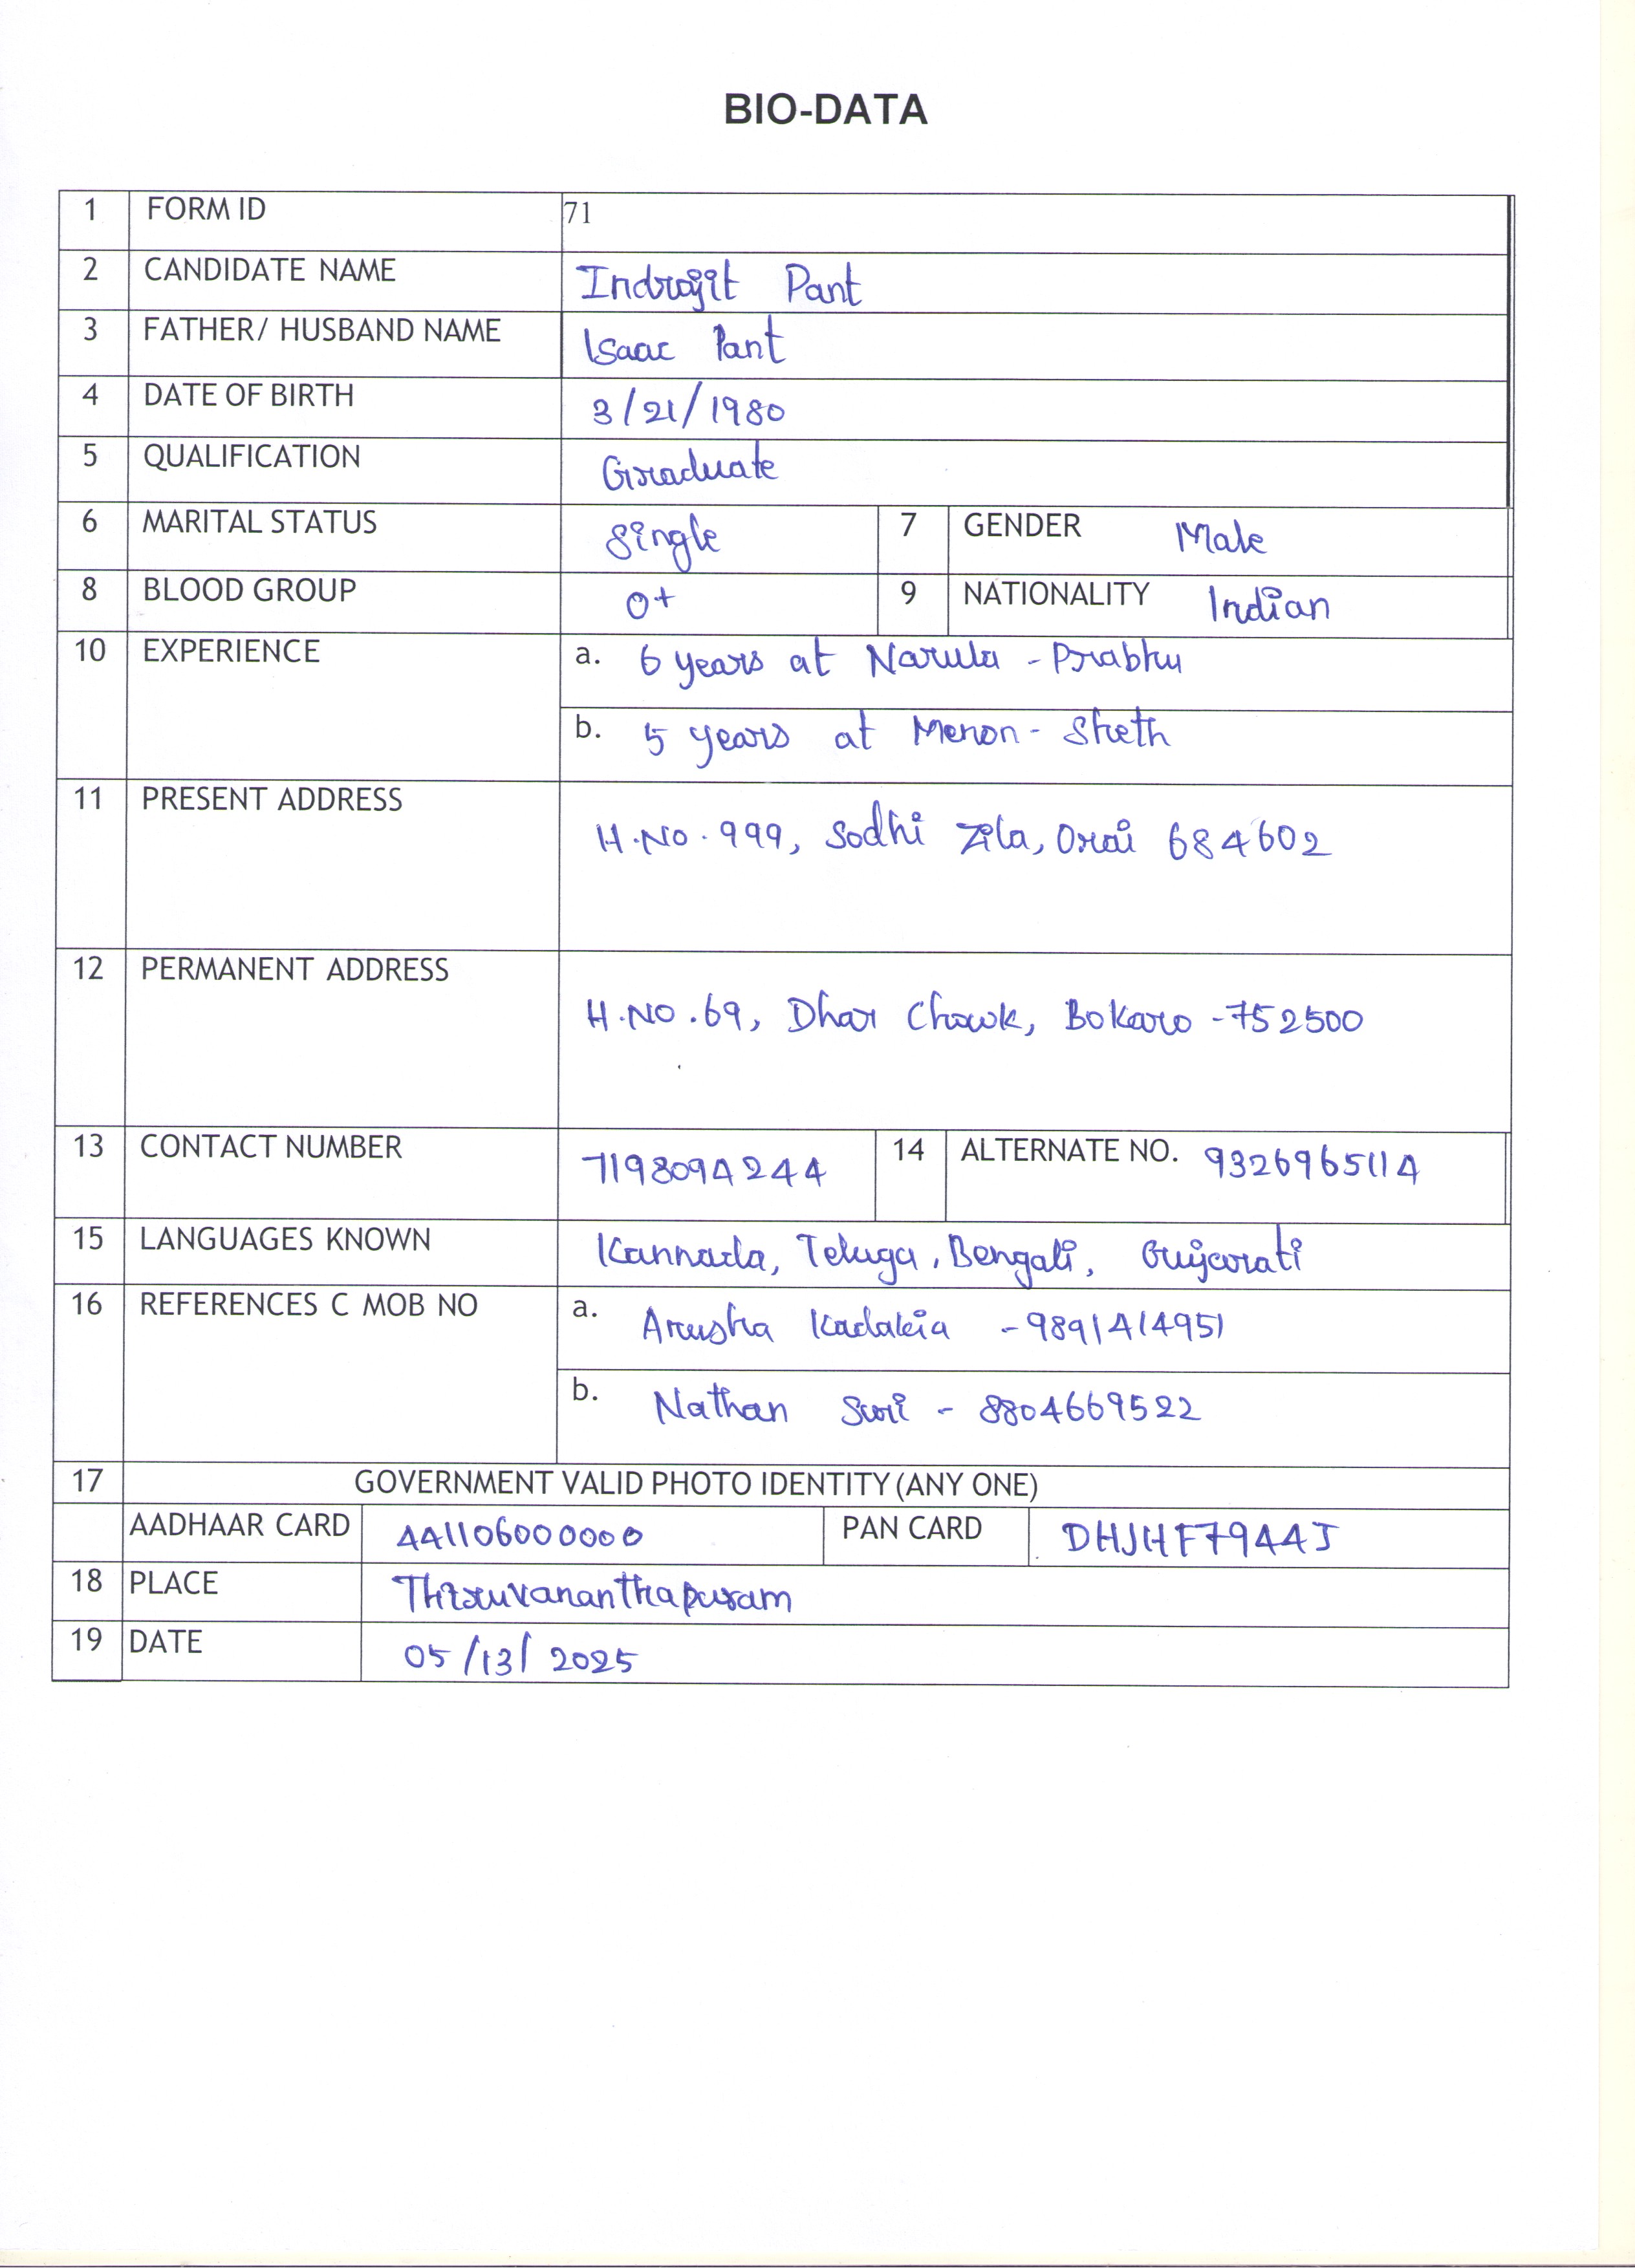 BIO-DATA
1 FORM ID 71
2 CANDIDATE NAME Indrajit Pant
3 FATHER/ HUSBAND NAME Isaac Pant
4 DATE OF BIRTH 3/21/1980
5 QUALIFICATION Graduate
6 MARITAL STATUS Single 7 GENDER Male
8 BLOOD GROUP O+ 9 NATIONALITY Indian
10 EXPERIENCE a. 6 years at Narula - Prabhu
b. 5 years at Menon - Sheth
11 PRESENT ADDRESS
H.No. 999, Sodhi Zila, Orai 684602
12 PERMANENT ADDRESS
H.No. 69, Dhar Chowk, Bokaro - 752500
13 CONTACT NUMBER 7198094244 14 ALTERNATE NO. 9326965114
15 LANGUAGES KNOWN Kannada, Telugu, Bengali, Gujarati
16 REFERENCES C MOB NO a. Anusha Kadakia - 9891414951
b. Nathan Suri - 8804669522
17 GOVERNMENT VALID PHOTO IDENTITY (ANY ONE)
AADHAAR CARD 441106000000 PAN CARD DHJHF7944J
18 PLACE Thiruvananthapuram
19 DATE 05/13/2025